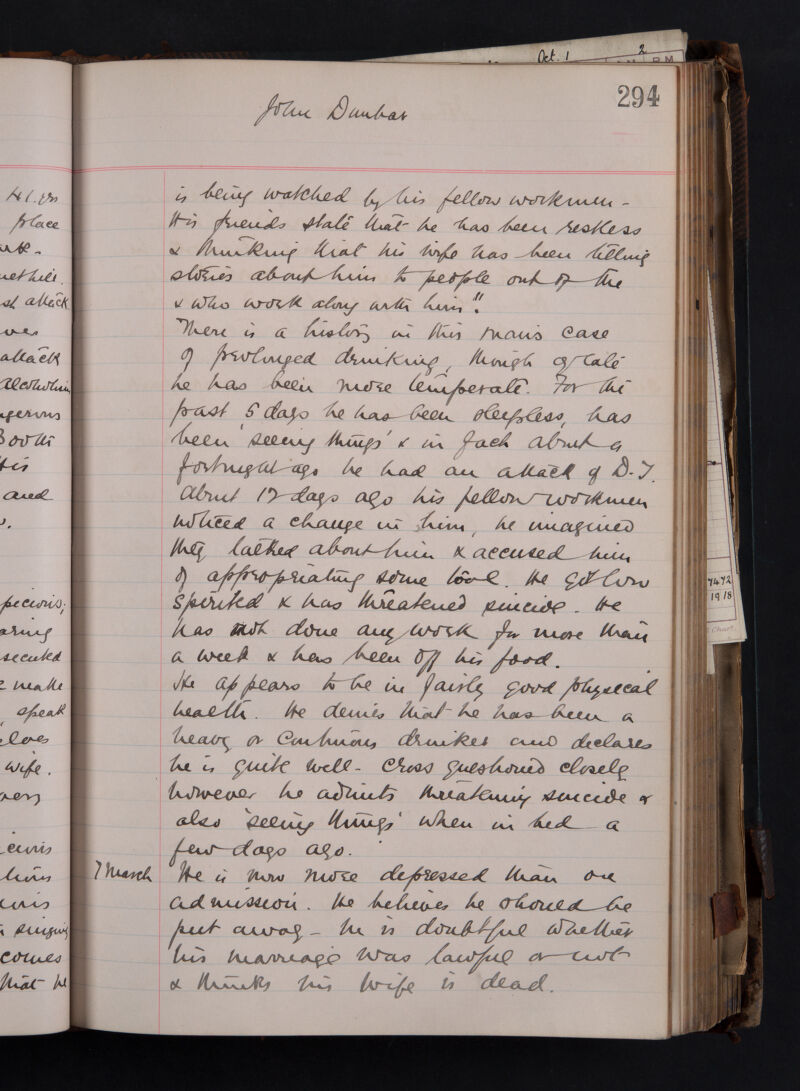 Oct. 1 2
P M
294
John Dunbar
is being watched by his fellow workmen -
His friends state that he has been restless
& thinking that his wife has been telling
stories about him to people out of the
& who work along with him".
There is a history in this man's case
of prolonged drinking, though of late
he has been more temperate. For the
past 5 days he has been sleepless, has
been 'seeing things' & in fact about a
fortnight ago he had an attack of D.T.
About 12 days ago his fellow workmen
noticed a change in him, he imagined
they talked about him & accused him
of appropriating some tool. He got low
spirited & has threatened suicide. He
has not done any work for more than
a week & has been off his food.
He appears to be in fairly good physical
health. He denies that he has been a
heavy or continuous drinker and declares
he is quite well - cross questioned closely
however he admits threatening suicide &
also 'seeing things' when in bed a
few days ago.
7 March He is now more depressed than on
admission. He believes he should be
put away - he is doubtful whether
his marriage was lawful or not
& thinks his wife is dead.
41. yrs
place
attack
attack
and
speak
wife.
singing
comes
that he
7472
1918
Chart